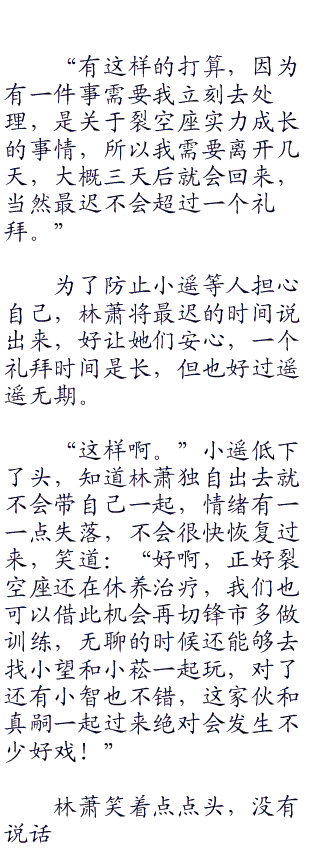 “有这样的打算，因为
有一件事需要我立刻去处
理，是关于裂空座实力成长
的事情，所以我需要离开几
天，大概三天后就会回来，
当然最迟不会超过一个礼
拜。”
为了防止小遥等人担心
自己，林萧将最迟的时间说
出来，好让她们安心，一个
礼拜时间是长，但也好过遥
遥无期。
“这样啊。”小遥低下
了头，知道林萧独自出去就
不会带自己一起，情绪有一
一点失落，不会很快恢复过
来，笑道：“好啊，正好裂
空座还在休养治疗，我们也
可以借此机会再切锋市多做
训练，无聊的时候还能够去
找小望和小菘一起玩，对了
还有小智也不错，这家伙和
真嗣一起过来绝对会发生不
少好戏！”
林萧笑着点点头，没有
说话